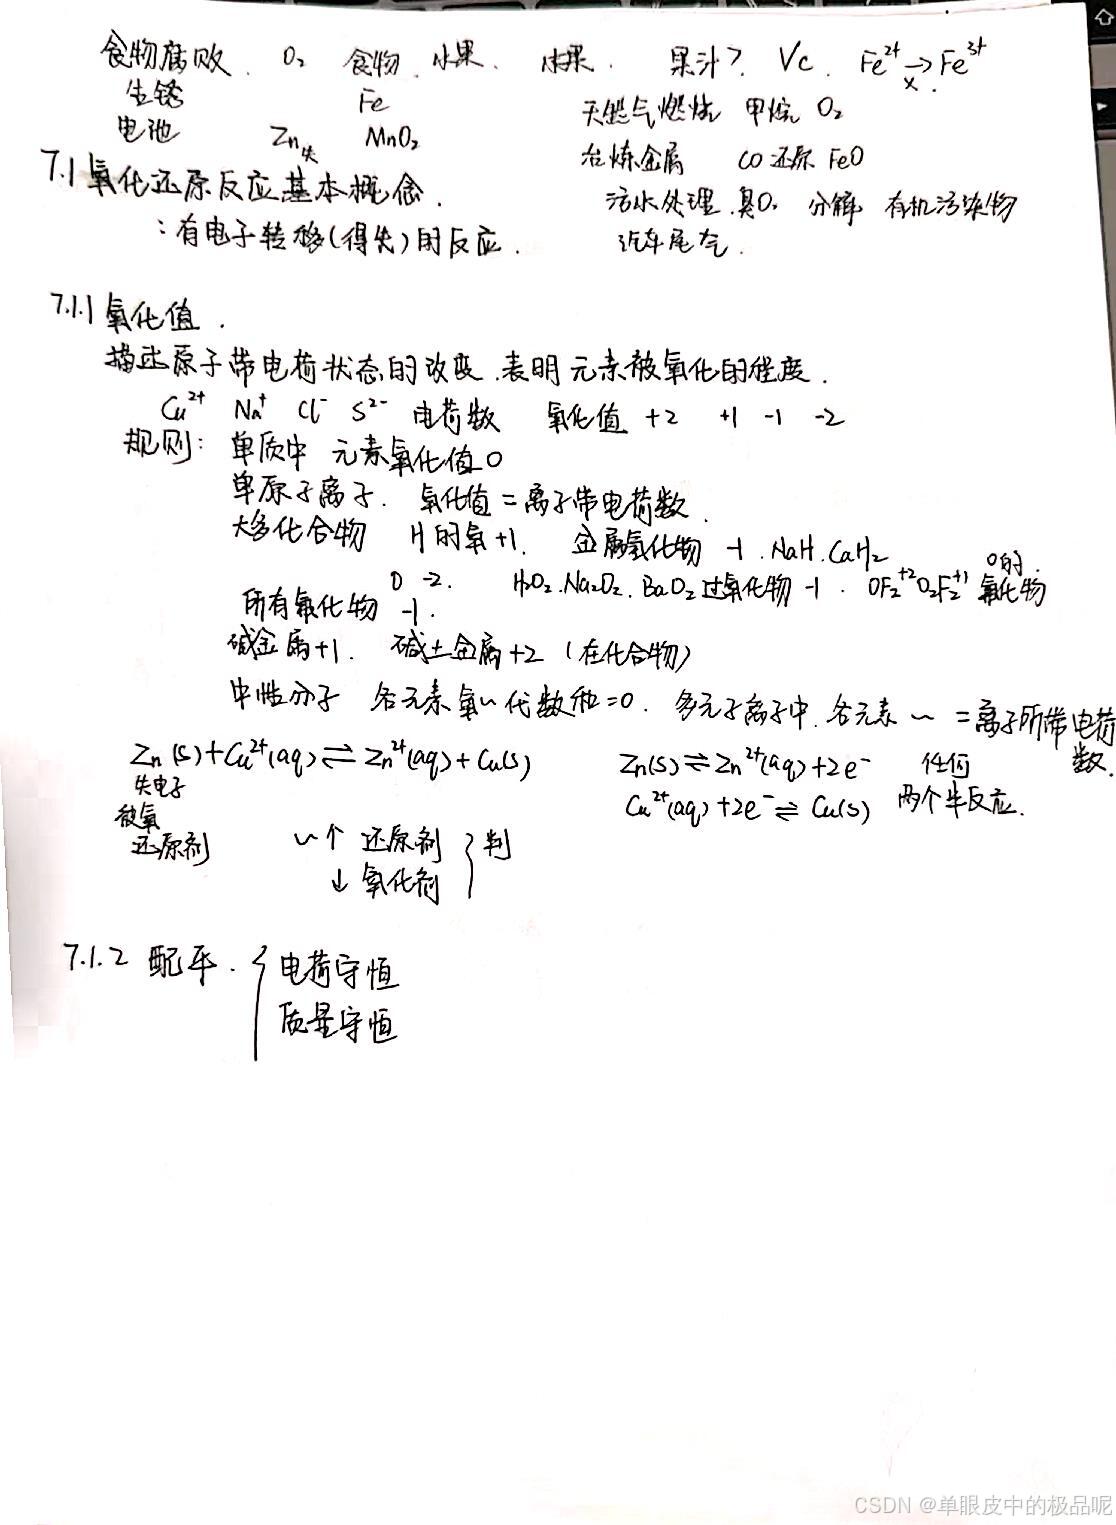 食物腐败. O₂ 食物. 水果. 水果. 果汁? Vc. Fe²⁺ →ₓ Fe³⁺
生锈 Fe
天然气燃烧 甲烷 O₂
电池 Zn失 MnO₂
冶炼金属 CO还原 FeO
7.1 氧化还原反应基本概念.
污水处理. 臭O₃ 分解 有机污染物
:有电子转移(得失)的反应.
汽车尾气.
7.1.1 氧化值.
描述原子带电荷状态的改变.表明元素被氧化的程度.
Cu²⁺ Na⁺ Cl⁻ S²⁻ 电荷数 氧化值 +2 +1 -1 -2
规则: 单质中 元素氧化值0
单原子离子. 氧化值=离子带电荷数.
大多化合物 H的氧+1. 金属氢化物 -1. NaH. CaH₂
O -2. H₂O₂. Na₂O₂. BaO₂ 过氧化物 -1. OF₂⁺² O₂F₂⁺¹ O的. 氟化物
所有氟化物 -1.
碱金属+1. 碱土金属+2 (在化合物)
中性分子 各元素氧~代数和=0. 多元子离子中.各元素~=离子所带电荷数.
Zn(s)+Cu²⁺(aq)⇌Zn²⁺(aq)+Cu(s) Zn(s)⇌Zn²⁺(aq)+2e⁻ 任何
失电子
Cu²⁺(aq)+2e⁻⇌Cu(s) 两个半反应.
被氧
还原剂 ~↑ 还原剂 } 判
↓ 氧化剂
7.1.2 配平. { 电荷守恒
质量守恒
CSDN @单眼皮中的极品呢